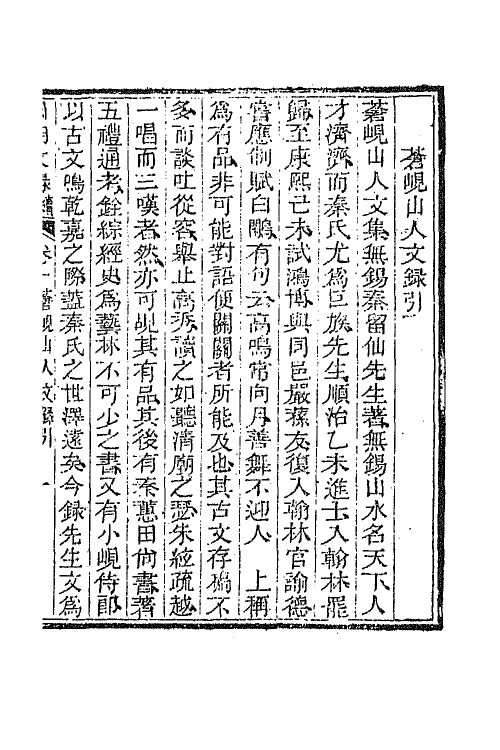 蒼峴山人文録引
蒼峴山人文集無錫秦留仙先生著無錫山水名天下人
才濟濟而秦氏尤爲巨族先生順治乙未進士入翰林罷
歸至康熙己未試鴻博與同邑嚴蓀友復入翰林官諭德
嘗應制賦白鷴有句云高鳴常向月善舞不迎人 上稱
爲有品非可能對語便關關者所能及也其古文存稿不
多而談吐從容舉止高秀讀之如聽清廟之瑟朱絃疏越
一唱而三嘆者然亦可覘其有品其後有秦蕙田尚書著
五禮通考銓綜經史爲藝林不可少之書又有小峴侍郎
以古文鳴乾嘉之際葢秦氏之世澤遠矣今録先生文爲
文録 卷十 蒼峴山人文録引 一